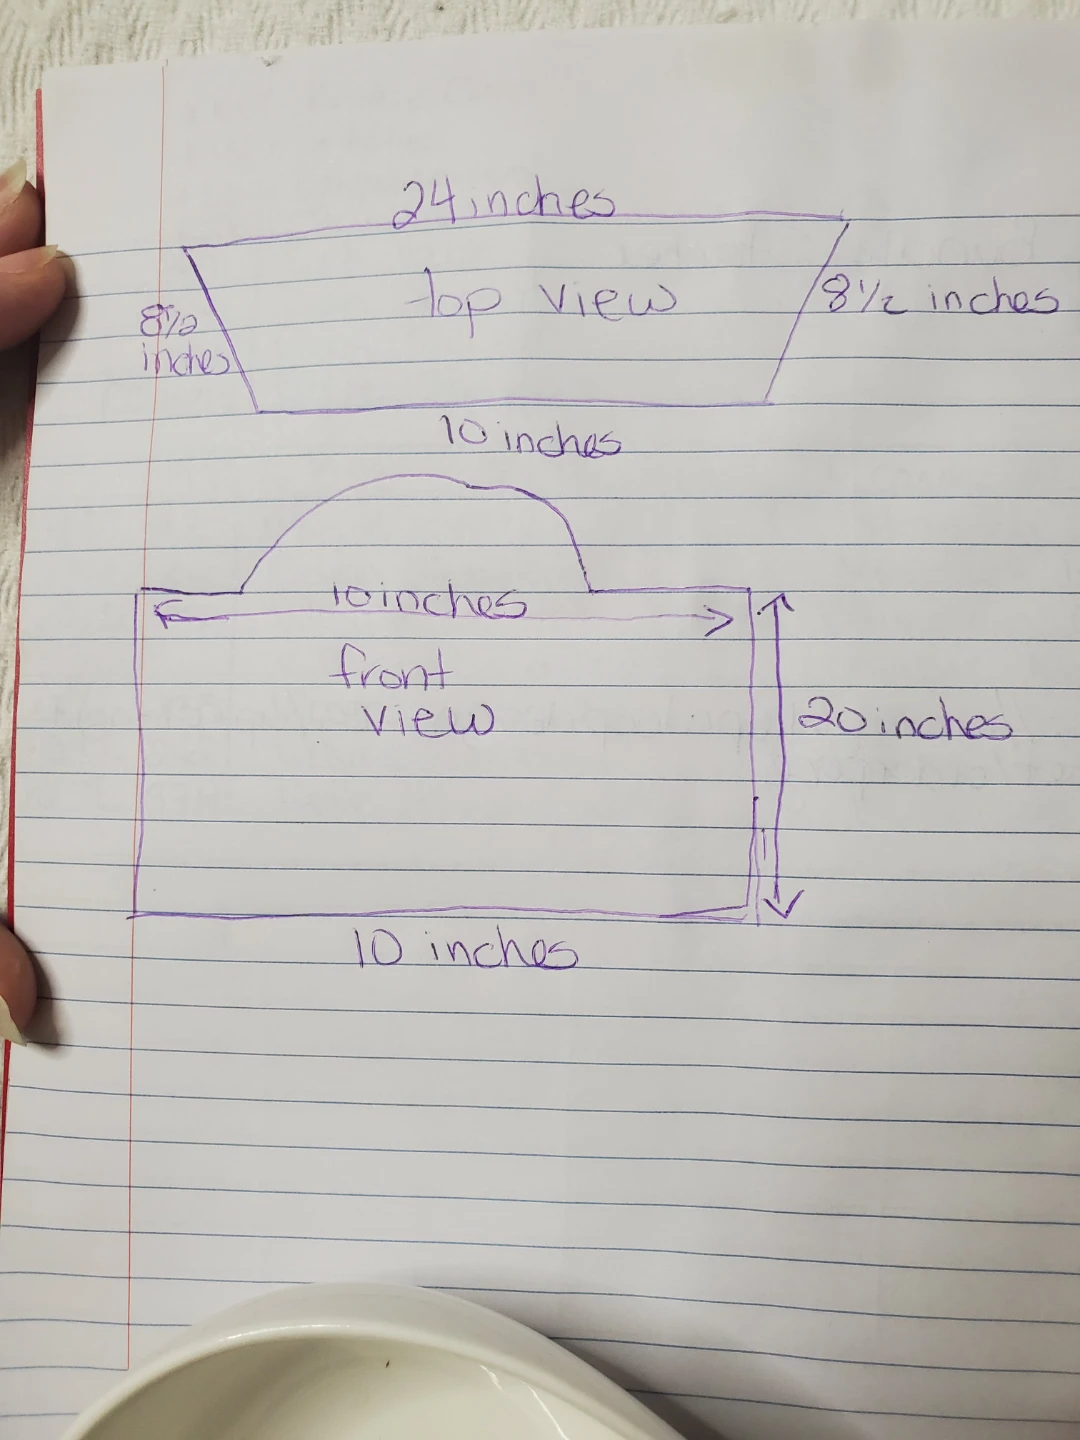 24 inches
top view
8 1/2 inches
8 1/2
inches
10 inches
10 inches
front
view
20 inches
10 inches